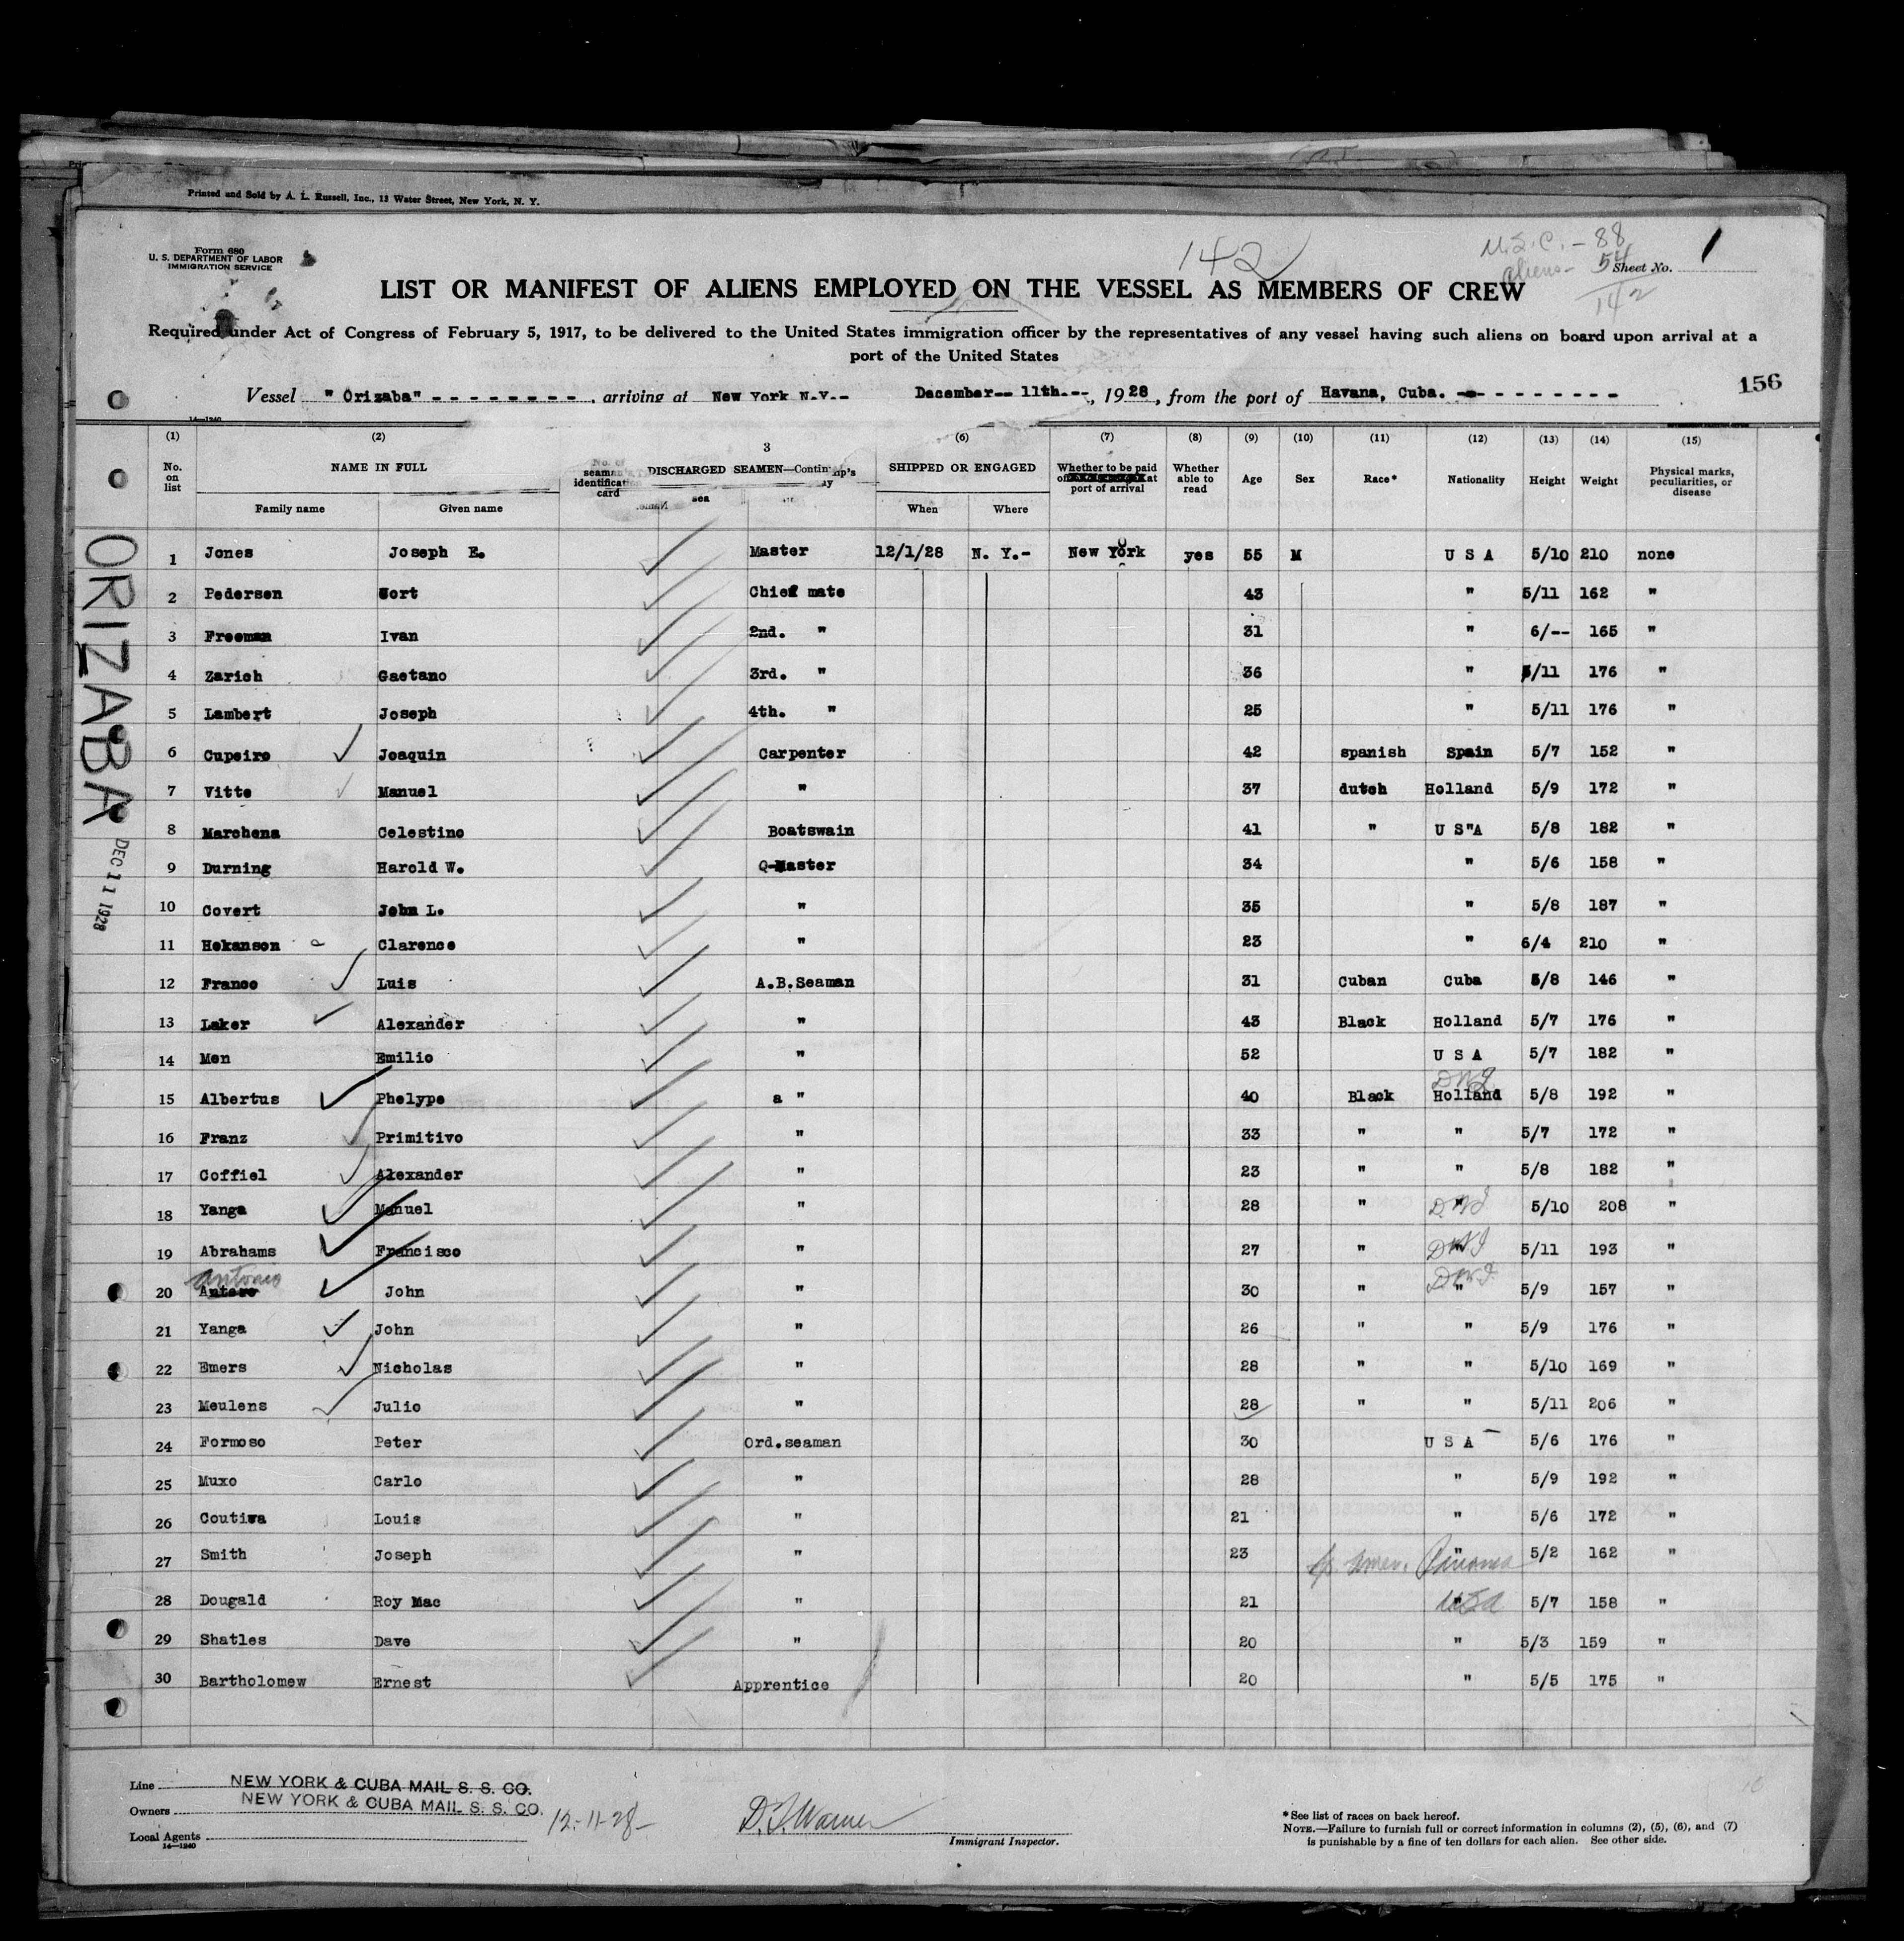 Printed and Sold by A. L. Russell, Inc., 13 Water Street, New York, N. Y.
Form 680
U. S. DEPARTMENT OF LABOR
IMMIGRATION SERVICE
142
U.S.C. - 88
aliens - 54
142
Sheet No. 1
LIST OR MANIFEST OF ALIENS EMPLOYED ON THE VESSEL AS MEMBERS OF CREW
Required under Act of Congress of February 5, 1917, to be delivered to the United States immigration officer by the representatives of any vessel having such aliens on board upon arrival at a
port of the United States
Vessel " Orizaba" - - - - - - - - -, arriving at New York N.Y.-- December-- 11th.--, 1928, from the port of Havana, Cuba. - - - - - - - - - -
156
14—1240
(1) (2) 3 (6) (7) (8) (9) (10) (11) (12) (13) (14) (15)
No. on list NAME IN FULL No. of seaman's identification card DISCHARGED SEAMEN—Contin SHIPPED OR ENGAGED Whether to be paid at port of arrival Whether able to read Age Sex Race* Nationality Height Weight Physical marks, peculiarities, or disease
Family name Given name sea When Where
1 Jones Joseph E. Master 12/1/28 N. Y.- New York yes 55 M U S A 5/10 210 none
2 Pedersen Chief mate 43 " 5/11 162 "
3 Freeman Ivan 2nd. " 31 " 6/-- 165 "
4 Zarich Gaetano 3rd. " 36 " 5/11 176 "
5 Lambert Joseph 4th. " 25 " 5/11 176 "
6 Cupeiro Joaquin Carpenter 42 spanish Spain 5/7 152 "
7 Vitte Manuel " 37 dutch Holland 5/9 172 "
8 Marchena Celestino Boatswain 41 " U S"A 5/8 182 "
9 Durning Harold W. Q-Master 34 " 5/6 158 "
10 Covert John L. " 35 " 5/8 187 "
11 Hekanson a Clarence " 23 " 6/4 210 "
12 Franco Luis A.B.Seaman 31 Cuban Cuba 5/8 146 "
13 Laker Alexander " 43 Black Holland 5/7 176 "
14 Men Emilio " 52 U S A 5/7 182 "
15 Albertus Phelype a " 40 Black D.W.I Holland 5/8 192 "
16 Franz Primitivo " 33 " " 5/7 172 "
17 Coffiel Alexander " 23 " " 5/8 182 "
18 Yanga Manuel " 28 " " D.W.I 5/10 208 "
19 Abrahams Francisco " 27 " " D.W.I 5/11 193 "
20 Antonio John " 30 " " D.W.I. 5/9 157 "
21 Yanga John " 26 " " 5/9 176 "
22 Emers Nicholas " 28 " " 5/10 169 "
23 Meulens Julio " 28 " " 5/11 206 "
24 Formoso Peter Ord.seaman 30 U S A 5/6 176 "
25 Muxo Carlo " 28 " 5/9 192 "
26 Coutiva Louis " 21 " 5/6 172 "
27 Smith Joseph " 23 " Panama 5/2 162 "
28 Dougald Roy Mac " 21 " USA 5/7 158 "
29 Shatles Dave " 20 " 5/3 159 "
30 Bartholomew Ernest Apprentice 20 " 5/5 175 "
ORIZABA
DEC 11 1928
Line NEW YORK & CUBA MAIL S. S. CO.
Owners NEW YORK & CUBA MAIL S. S. CO.
Local Agents
14—1240
12-11-28-
D.J. Warner
Immigrant Inspector.
*See list of races on back hereof.
NOTE.—Failure to furnish full or correct information in columns (2), (5), (6), and (7)
is punishable by a fine of ten dollars for each alien. See other side.